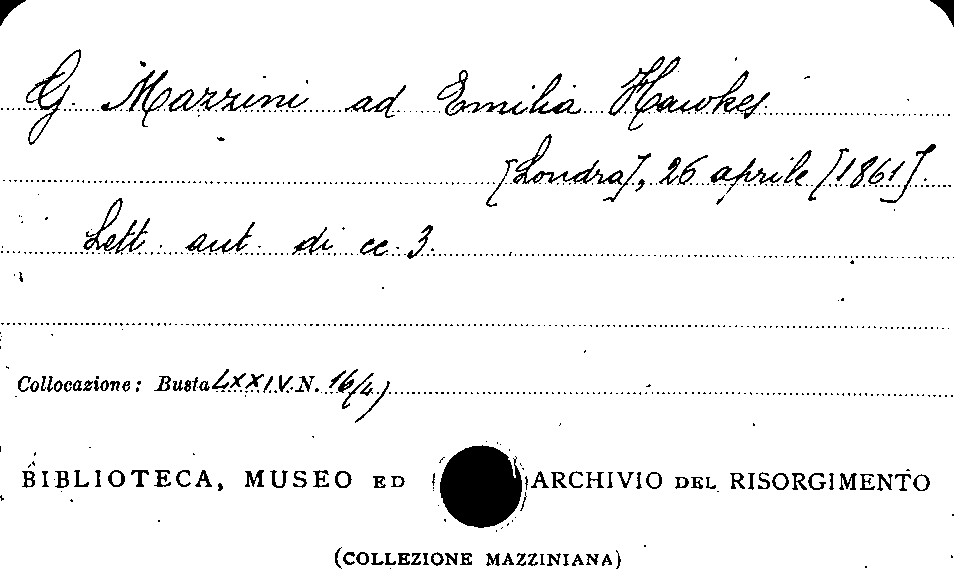 G. Mazzini ad Emilia Hawkes
[Londra], 26 aprile [1861].
Lett. aut. di cc. 3.
Collocazione: Busta LXXIV. N. 16/4)
BIBLIOTECA, MUSEO ED ARCHIVIO DEL RISORGIMENTO
(COLLEZIONE MAZZINIANA)